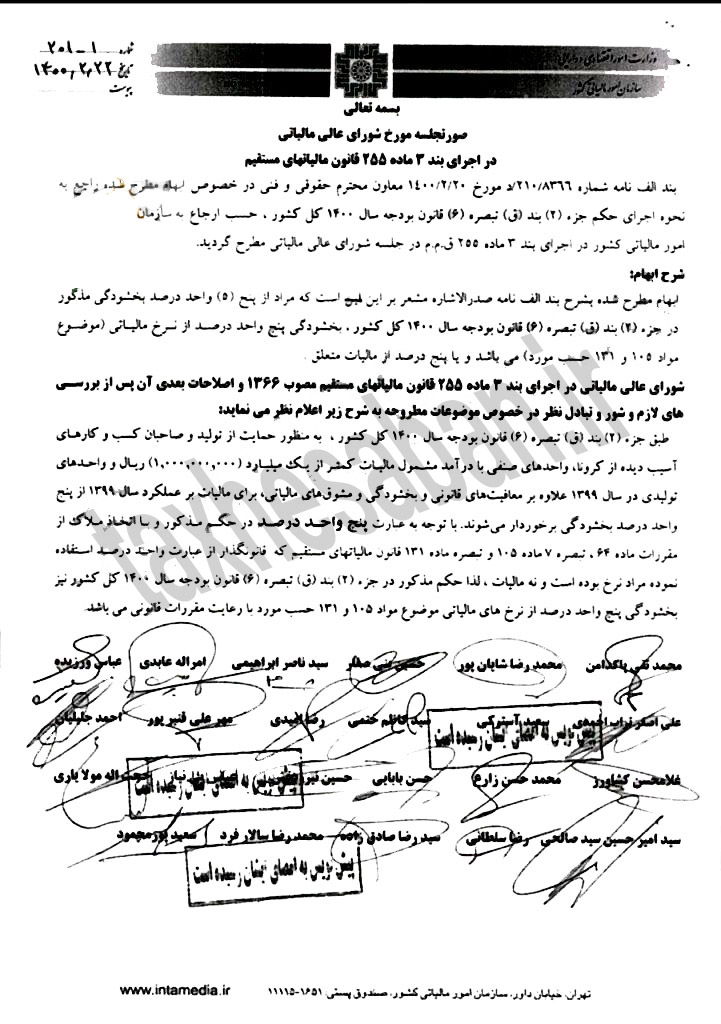 وزارت امور اقتصادی و دارایی
سازمان امور مالیاتی کشور
شماره ۲۰۱-۱
تاریخ ۱۴۰۰,۲,۲۲
پیوست
بسمه تعالی
صورتجلسه مورخ شورای عالی مالیاتی
در اجرای بند ۳ ماده ۲۵۵ قانون مالیاتهای مستقیم
بند الف نامه شماره ۲۱۰/۸۳۶۶/د مورخ ۱۴۰۰/۲/۲۰ معاون محترم حقوقی و فنی در خصوص ابهام مطرح شده راجع به
نحوه اجرای حکم جزء (۲) بند (ق) تبصره (۶) قانون بودجه سال ۱۴۰۰ کل کشور ، حسب ارجاع به سازمان
امور مالیاتی کشور در اجرای بند ۳ ماده ۲۵۵ ق.م.م در جلسه شورای عالی مالیاتی مطرح گردید.
شرح ابهام:
ابهام مطرح شده بشرح بند الف نامه صدرالاشاره مشعر بر این است که مراد از پنج (۵) واحد درصد بخشودگی مذکور
در جزء (۲) بند (ق) تبصره (۶) قانون بودجه سال ۱۴۰۰ کل کشور ، بخشودگی پنج واحد درصد از نرخ مالیاتی (موضوع
مواد ۱۰۵ و ۱۳۱ حسب مورد) می باشد و یا پنج درصد از مالیات متعلق .
شورای عالی مالیاتی در اجرای بند ۳ ماده ۲۵۵ قانون مالیاتهای مستقیم مصوب ۱۳۶۶ و اصلاحات بعدی آن پس از بررسی
های لازم و شور و تبادل نظر در خصوص موضوعات مطروحه به شرح زیر اعلام نظر می نماید:
طبق جزء (۲) بند (ق) تبصره (۶) قانون بودجه سال ۱۴۰۰ کل کشور ، به منظور حمایت از تولید و صاحبان کسب و کارهای
آسیب دیده از کرونا، واحدهای صنفی با درآمد مشمول مالیات کمتر از یک میلیارد (۱,۰۰۰,۰۰۰,۰۰۰) ریال و واحدهای
تولیدی در سال ۱۳۹۹ علاوه بر معافیت‌های قانونی و بخشودگی و مشوق‌های مالیاتی، برای مالیات بر عملکرد سال ۱۳۹۹ از پنج
واحد درصد بخشودگی برخوردار می‌شوند. با توجه به عبارت پنج واحد درصد در حکم مذکور و با اتخاذ ملاک از
مقررات ماده ۶۴ ، تبصره ۷ ماده ۱۰۵ و تبصره ماده ۱۳۱ قانون مالیاتهای مستقیم که قانونگذار از عبارت واحد درصد استفاده
نموده مراد نرخ بوده است و نه مالیات ، لذا حکم مذکور در جزء (۲) بند (ق) تبصره (۶) قانون بودجه سال ۱۴۰۰ کل کشور نیز
بخشودگی پنج واحد درصد از نرخ های مالیاتی موضوع مواد ۱۰۵ و ۱۳۱ حسب مورد با رعایت مقررات قانونی می باشد.
محمد تقی پاکدامن محمد رضا شایان پور سید ناصر ابراهیمی امراله عابدی عباس ورزیده
علی اصغر تراب احمدی سعید آسترکی سید کاظم ختمی رضا امیدی مهر علی قنبر پور احمد جلیلیان
پیش نویس به امضای ایشان رسیده است
غلامحسن کشاورز محمد حسن زارع حسن بابایی حسین حجت اله مولا یاری
پیش نویس به امضای ایشان رسیده است
سید امیر حسین سید صالحی رضا سلطانی سید رضا صادق زاده محمد رضا سالار فرد سعید پور محمود
پیش نویس به امضای ایشان رسیده است
taxhesaban.ir
تهران، خیابان داور، سازمان امور مالیاتی کشور، صندوق پستی: ۱۶۵۱-۱۱۱۱۵
www.intamedia.ir